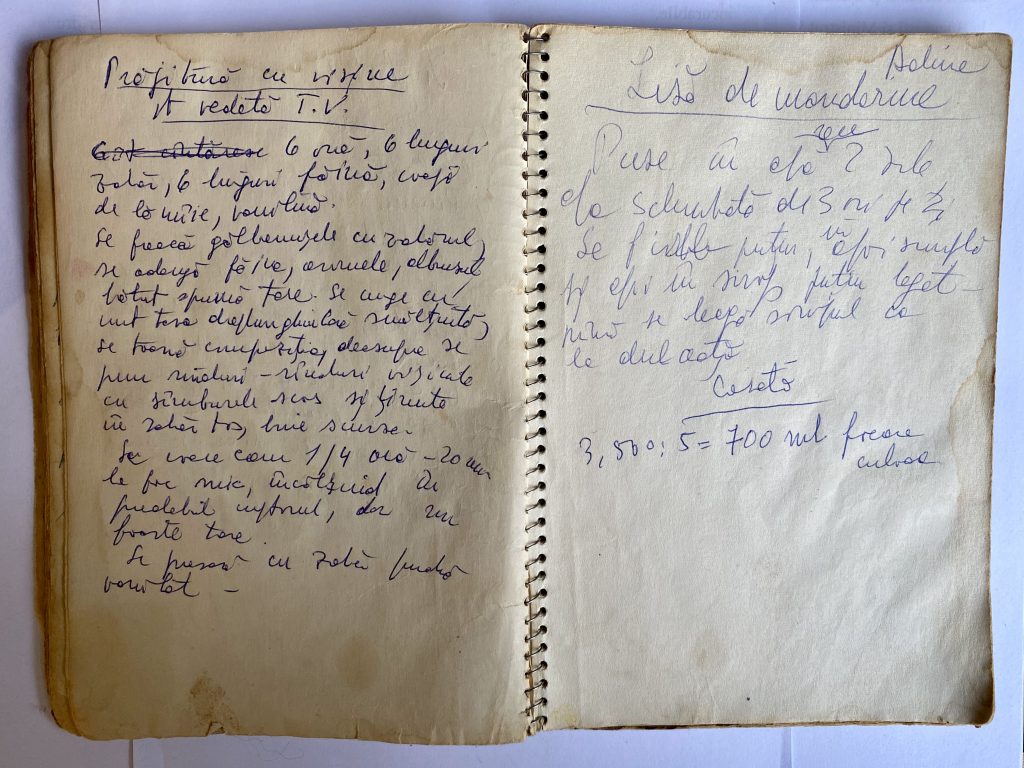 Prăjitură cu vișine
A vedetă T.V.
6 ouă, 6 linguri
zahăr, 6 linguri făină, coajă
de lămîie, vanilină.
Se freacă gălbenușele cu zahărul,
se adaugă făina, aromele, albușul
bătut spumă tare. Se unge cu
unt tava dreptunghiulară smălțuită,
se toarnă compoziția, deasupra se
pun rînduri-rînduri vișinele
cu sîmburele scos și ținute
în zahăr tos, bine scurse.
Se coace cam 1/4 oră – 20 min
la foc mic, încălzind în
prealabil cuptorul, dar nu
foarte tare.
Se presară cu zahăr pudră
vanilat –
Adina
de mandarine
rece
Puse în apă 2 zile
apa schimbată de 3 ori pe zi
Se fierbe puțin, în apoi simplă
și apoi în sirop puțin legat –
pînă se leagă siropul ca
la dulceață
Caseta
3,500 : 5 = 700 ml fiecare
culoare